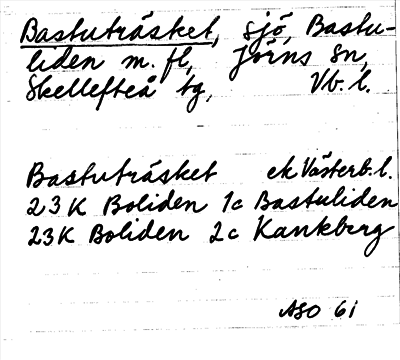 Bastuträsket, sjö, Bastu-
liden m. fl, Jörns sn,
Skellefteå tg, Vb. l.
Bastuträsket ek Västerb. l.
23 K Boliden 1c Bastuliden
23K Boliden 2c Kankberg
ASO 61